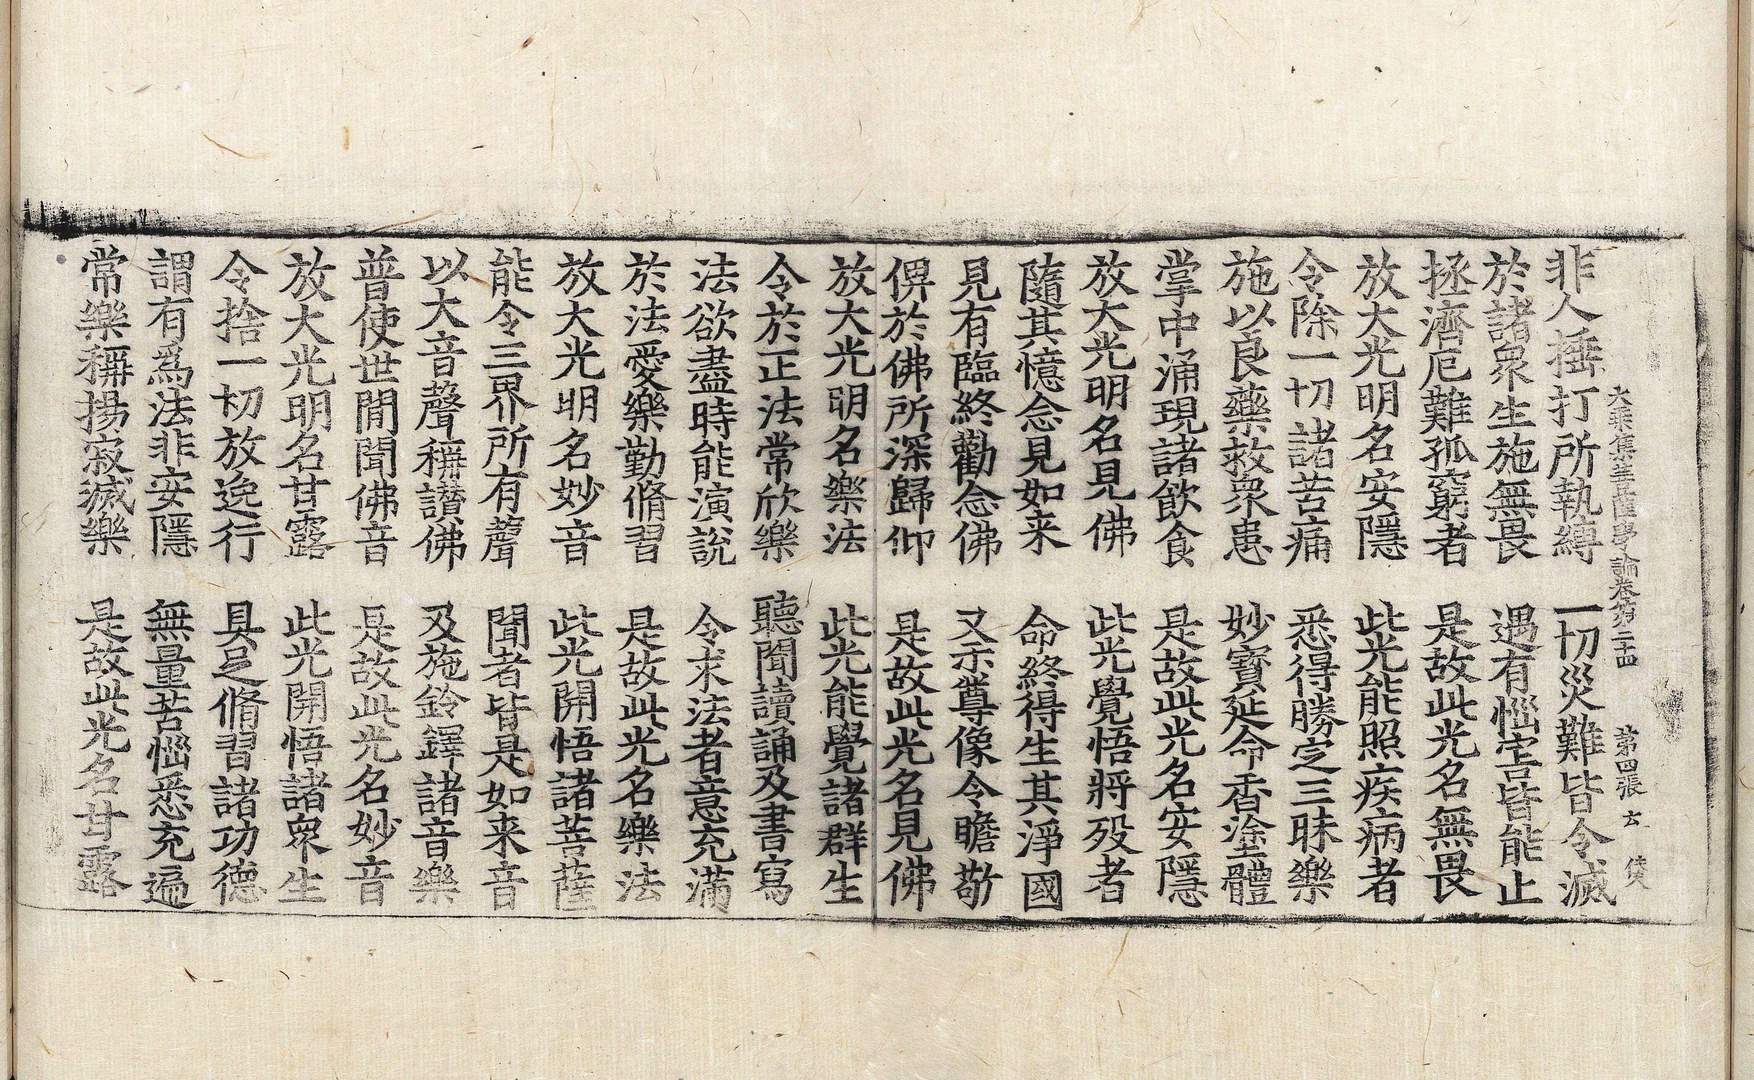 大乘集菩薩學論卷第二十四 第四張 六 俠
非人捶打所執縛 一切災難皆令滅
於諸衆生施無畏 遇有惱害皆能止
拯濟厄難孤窮者 是故此光名無畏
放大光明名安隱 此光能照疾病者
令除一切諸苦痛 悉得勝定三昧樂
施以良藥救衆患 妙寶延命香塗體
掌中涌現諸飲食 是故此光名安隱
放大光明名見佛 此光覺悟將歿者
隨其憶念見如来 命終得生其淨國
見有臨終勸念佛 又示尊像令瞻敬
俾於佛所深歸仰 是故此光名見佛
放大光明名樂法 此光能覺諸群生
令於正法常欣樂 聽聞讀誦及書寫
法欲盡時能演說 令求法者意充滿
於法愛樂勤脩習 是故此光名樂法
放大光明名妙音 此光開悟諸菩薩
能令三界所有聲 聞者皆是如来音
以大音聲稱讃佛 及施鈴鐸諸音樂
普使世間聞佛音 是故此光名妙音
放大光明名甘露 此光開悟諸衆生
令捨一切放逸行 具足脩習諸功德
謂有為法非安隱 無量苦惱悉充遍
常樂稱揚寂滅樂 是故此光名甘露